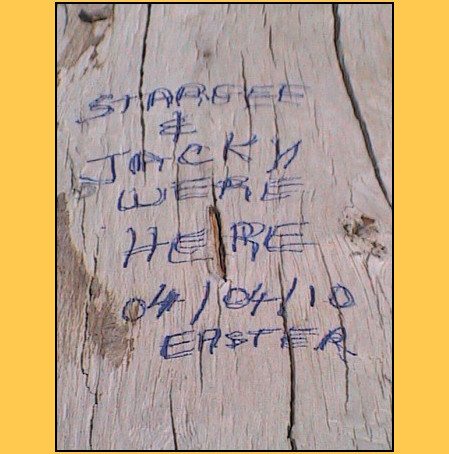 STARGEE
&
JACKY
WERE
HERE
04/04/10
EASTER